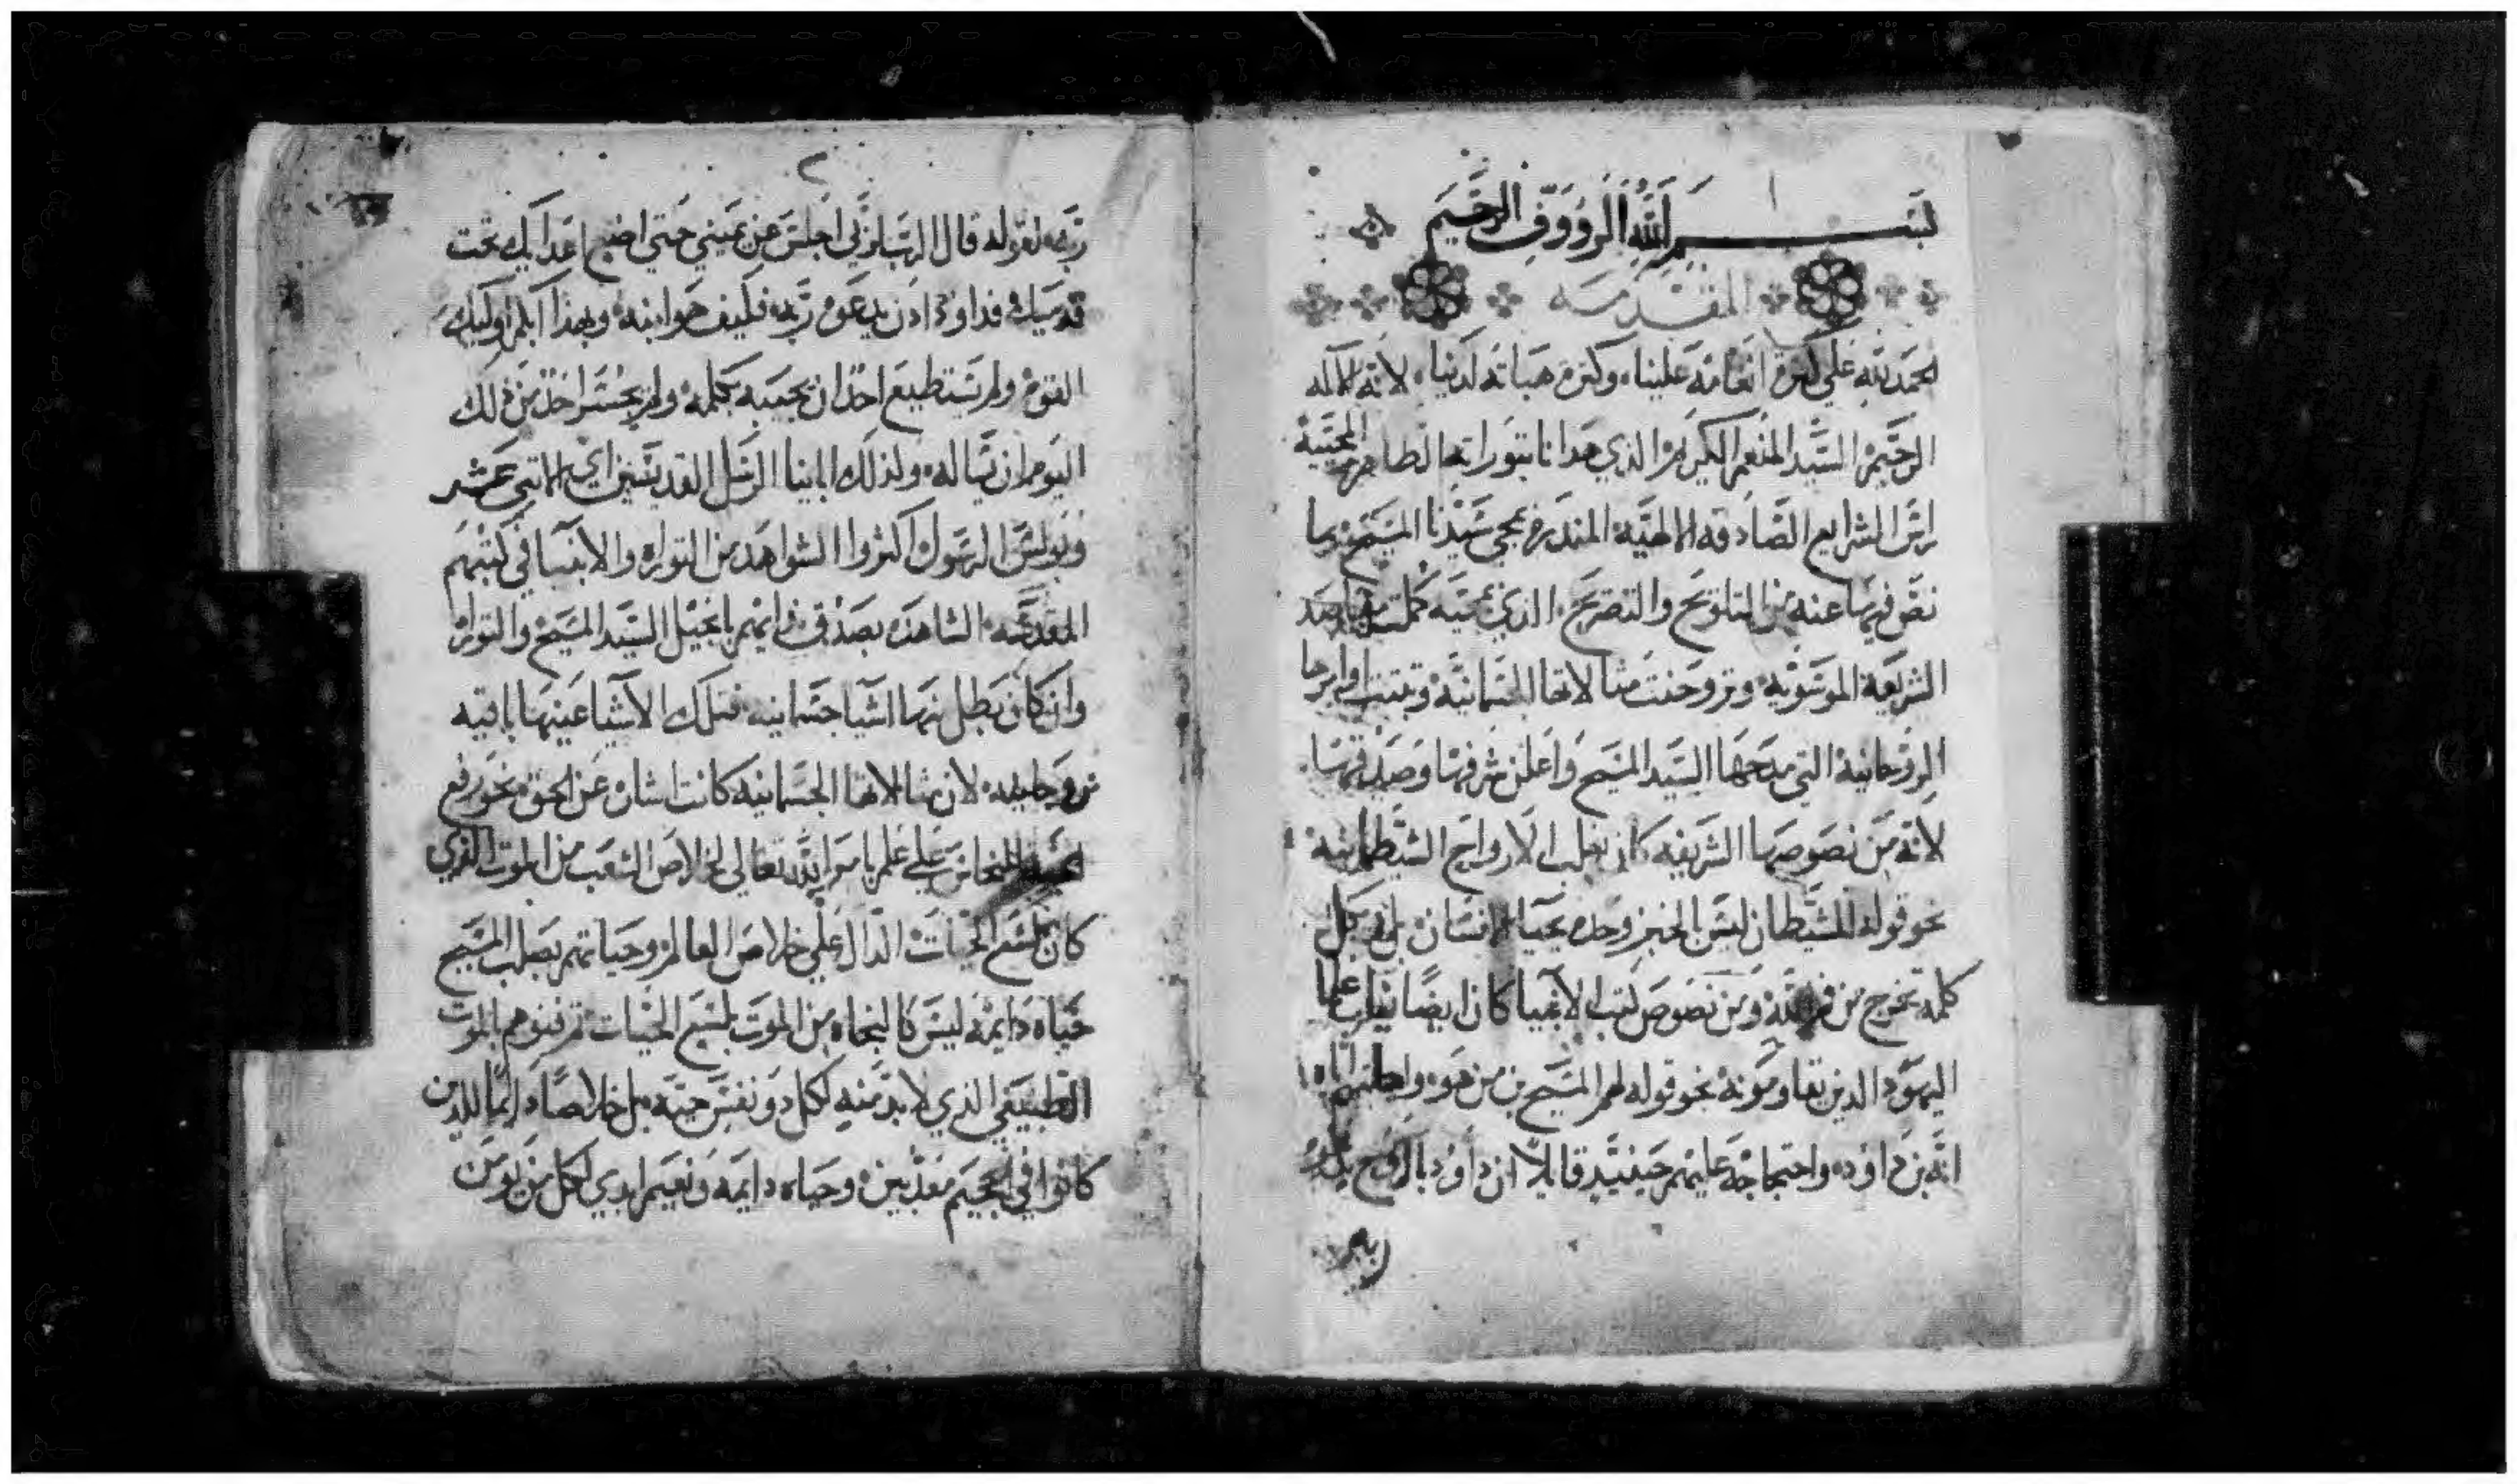 بسم الله الرووف الرحيم
المقدمه
الحمد لله على كثرة انعامه علينا، وكثرة هباته لدينا، لانه الاله
الرحيم السيد المنعم الكريم الذي هدانا بتوراته الطاهره المحييه
راس الشرايع الصادقه الالهيه المنذره بمجي سيدنا المسيح بما
نص فيها عنه من التلويح والتصريح، الذي بمجيه كملت مقاصد
الشريعة الموسويه وتروحنت مثالاتها الجسمانيه وتبتت اوامرها
الروحانية التي مدحها السيد المسيح واعلن شرفها وصدقها،
لانه من نصوصها الشريفه كان يغلب الارواح الشيطانيه
نحو قوله للشيطان ليس بالخبز وحده يحيا الانسان بل بكل
كلمه تخرج من فم الله ومن نصوص كتب الانبيا كان ايضا يغلب علما
اليهود الذين يقاومونه نحو قوله لهم المسيح بن من هو، واجابتهم اياه
انه بن داوود، واحتجاجه عليهم حينيذ قايلا ان داوود بالروح يدعوه
ربه
٢
ربه لقوله قال الرب لربي اجلس عن يميني حتي اضع اعداك تحت
قدميك فداوود اذن يدعوه ربه فكيف هو ابنه وبهذا ابكم اوليك
القوم ولم يستطيع احد ان يجيبه بكلمه ولم يجسر احد من ذلك
اليوم ان يساله، ولذلك اباينا الرسل القديسين اي الاتني عشر
وبولس الرسول اكثروا الشواهد من التوراه والانبيا في كتبهم
المقدسه الشاهده بصدق ايمانهم بانجيل السيد المسيح والتوراه
وان كان بطل منها اشيا جسمانيه فتلك الاشيا عينها باقيه
بروحانيه لان مثالاتها الجسمانيه كانت اشاره عن الحق نحو رفع
الحيه النحاس علي علم بامر الله تعالي لخلاص الشعب من الموت الذي
كان بلسع الحيات الدال علي خلاص العالم وحياتهم بصلب المسيح
حياه دايمه ليس كالنجاه من الموت بلسع الحيات ثم فنيوهم بالموت
الطبيعي الذي لا بد منه لكل دو نفس حيه بل خلاصا دايما للذين
كانوا في الجحيم معذبين، وحياه دايمه ونعيم ابدي لكل من يومن